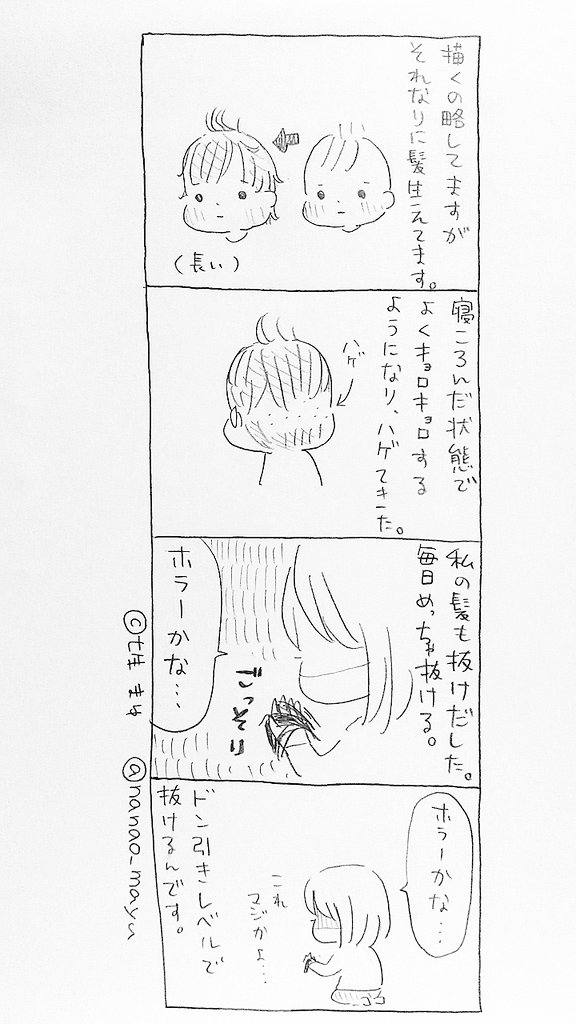 描くの略してますが
それなりに髪生えてます。
(長い)
寝ころんだ状態で
よくキョロキョロする
ようになり、ハゲてきた。
ハゲ
私の髪も抜けだした。
毎日めっちゃ抜ける。
ごっそり
ホラーかな…
ホラーかな…
これ
マジかよ…
ドン引きレベルで
抜けるんです。
@nanao_mayu